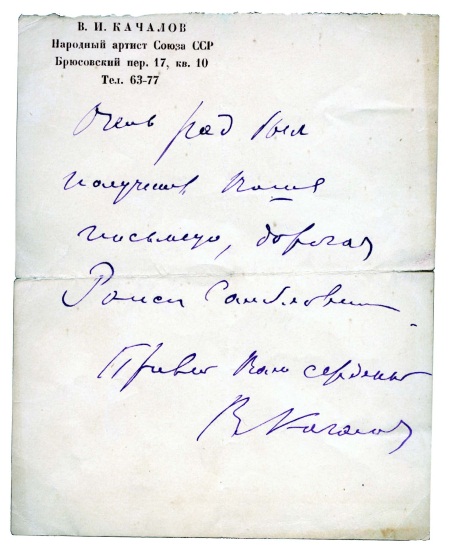 В. И. КАЧАЛОВ
Народный артист Союза ССР
Брюсовский пер. 17, кв. 10
Тел. 63-77
Очень рад был
получить Ваше
письмецо, дорогая
Раиса
Привет Вам сердечный
В Качалов